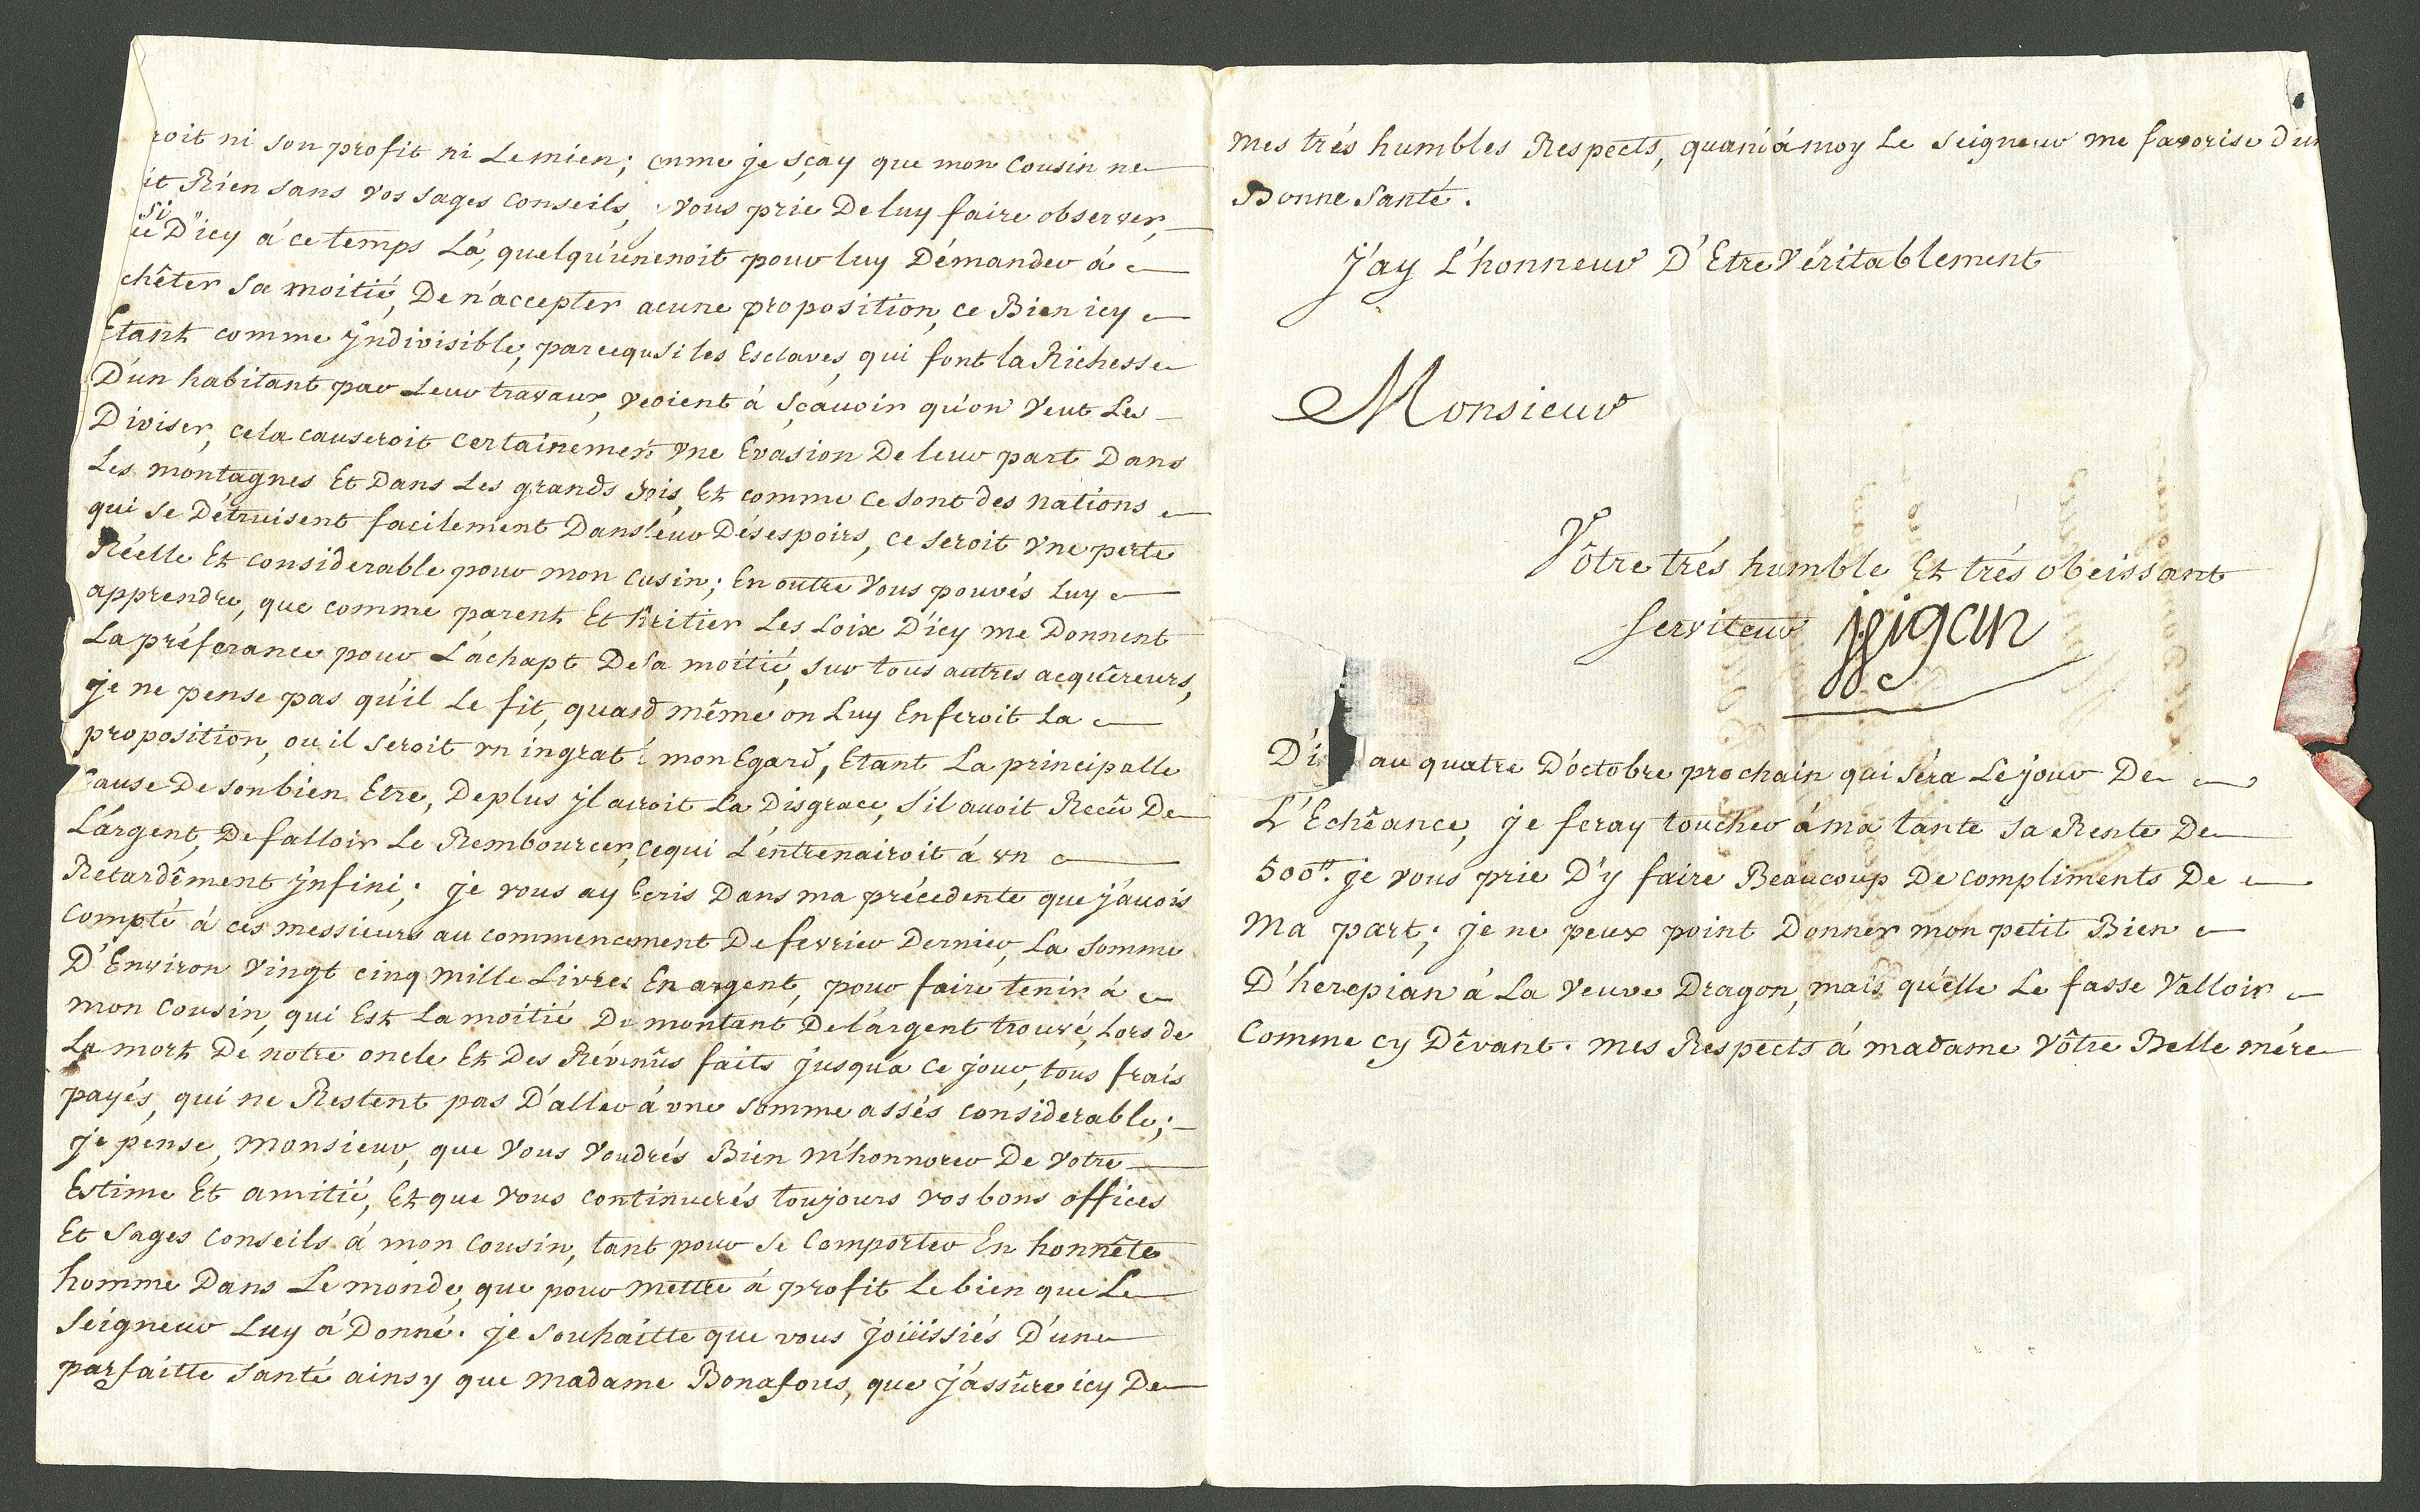 roit ni son profit ni Le mien; comme je sçay que mon Cousin ne
it Rien sans vos sages Conseils, vous prie De luy faire observer,
si D'icy á ce temps Lá, quelqu'un venoit pour luy Démander á
chêter sa moitié, De n'accepter acune proposition, ce Bien icy
Etant comme jndivisible, parceque si les Esclaves, qui font la Richesse
D'un habitant par Leur travaux, venoient á sçauoir qu'on Veut Les
Diviser, cela causeroit certainement vne Evasion De leur part Dans
Les montagnes Et Dans Les grands Bois, Et comme ce sont des nations
qui se Détruisent facilement Dans leur Désespoirs, ce seroit vne perte
Réelle Et considerable pour mon cusin; En outre Vous pouvés Luy
apprendre, que comme parent Et hêritier Les Loix D'icy me Donnent
La préferance pour L'áchapt De sa moitié, sur tous autres acquêreurs,
je ne pense pas qu'il Le fit, quand même on Luy En feroit La
proposition, ou il seroit vn ingrat á mon Egard, Etant La principalle
Cause De son bien Etre, De plus jl auroit La Disgrace, s'il auoit Recû De
L'argent, De falloir Le Rembourcer, ce qui L'éntrenairoit á vn
Retardêment jnfini; je vous ay Ecris Dans ma précedente que j'áuois
Compté á ces messieurs au commencement De fevrier Dernier, La Somme
D'Environ Vingt cinq mille Livres En argent, pour faire tenir á
mon Cousin, qui Est La moitié Du montant De l'argent trouvé, Lors de
La mort De notre oncle Et Des Révenûs faits jusqu'á Ce jour, tous frais
payés, qui ne Restent pas D'aller á vne somme assés considerable;
je pense, Monsieur, que Vous Voudrés Bien m'honnorer De Votre
Estime Et amitié, Et que Vous Continuerés toujours vos bons offices
Et Sages Conseils á mon Cousin, tant pour se Comporter En honnête
homme Dans Le monde, que pour mettre á profit Le bien que Le
Seigneur Luy á Donné. je souhaitte que vous joüissiés D'une
parfaitte Santé ainsy que Madame Bonafous, que j'ássûre icy De
Mes trés humbles Respects, quant á moy Le Seigneur me favorise d'un
Bonne Santé.
J'ay L'honneur D'Etre Véritablement
Monsieur
Vôtre trés humble Et trés obeissant
Serviteur jjigan
D'i au quatre D'octobre prochain qui séra Le jour De
L'Echêance, je feray toucher á ma tante sa Rente De
500tt. je vous prie D'y faire Beaucoup De compliments De
Ma part; je ne peux point Donner mon petit Bien
D'herepian á La Veuve Dragon, mais qu'elle Le fasse Valloir
Comme cy Dêvant. mes Respects á madame Vôtre Belle mére